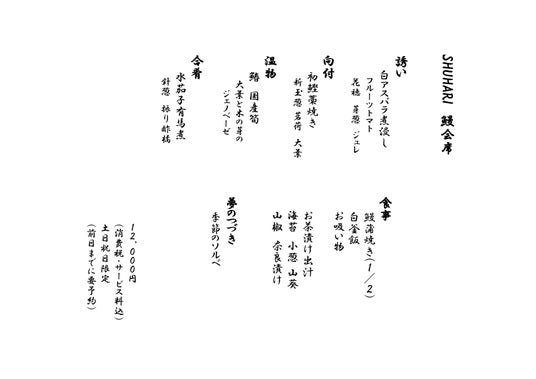 SHUHARI 鰻会席
誘い
白アスパラ煮浸し
フルーツトマト
花穂 芽葱 ジュレ
向付
初鰹藁焼き
新玉葱 茗荷 大葉
温物
鰆 国産筍
大葉と木の芽の
ジェノベーゼ
合肴
水茄子有馬煮
針葱 振り酢橘
食事
鰻蒲焼き(1/2)
白釜飯
お吸い物
お茶漬け出汁
海苔 小葱 山葵
山椒 奈良漬け
夢のつづき
季節のソルベ
12,000円
(消費税・サービス料込)
土日祝日限定
(前日までに要予約)